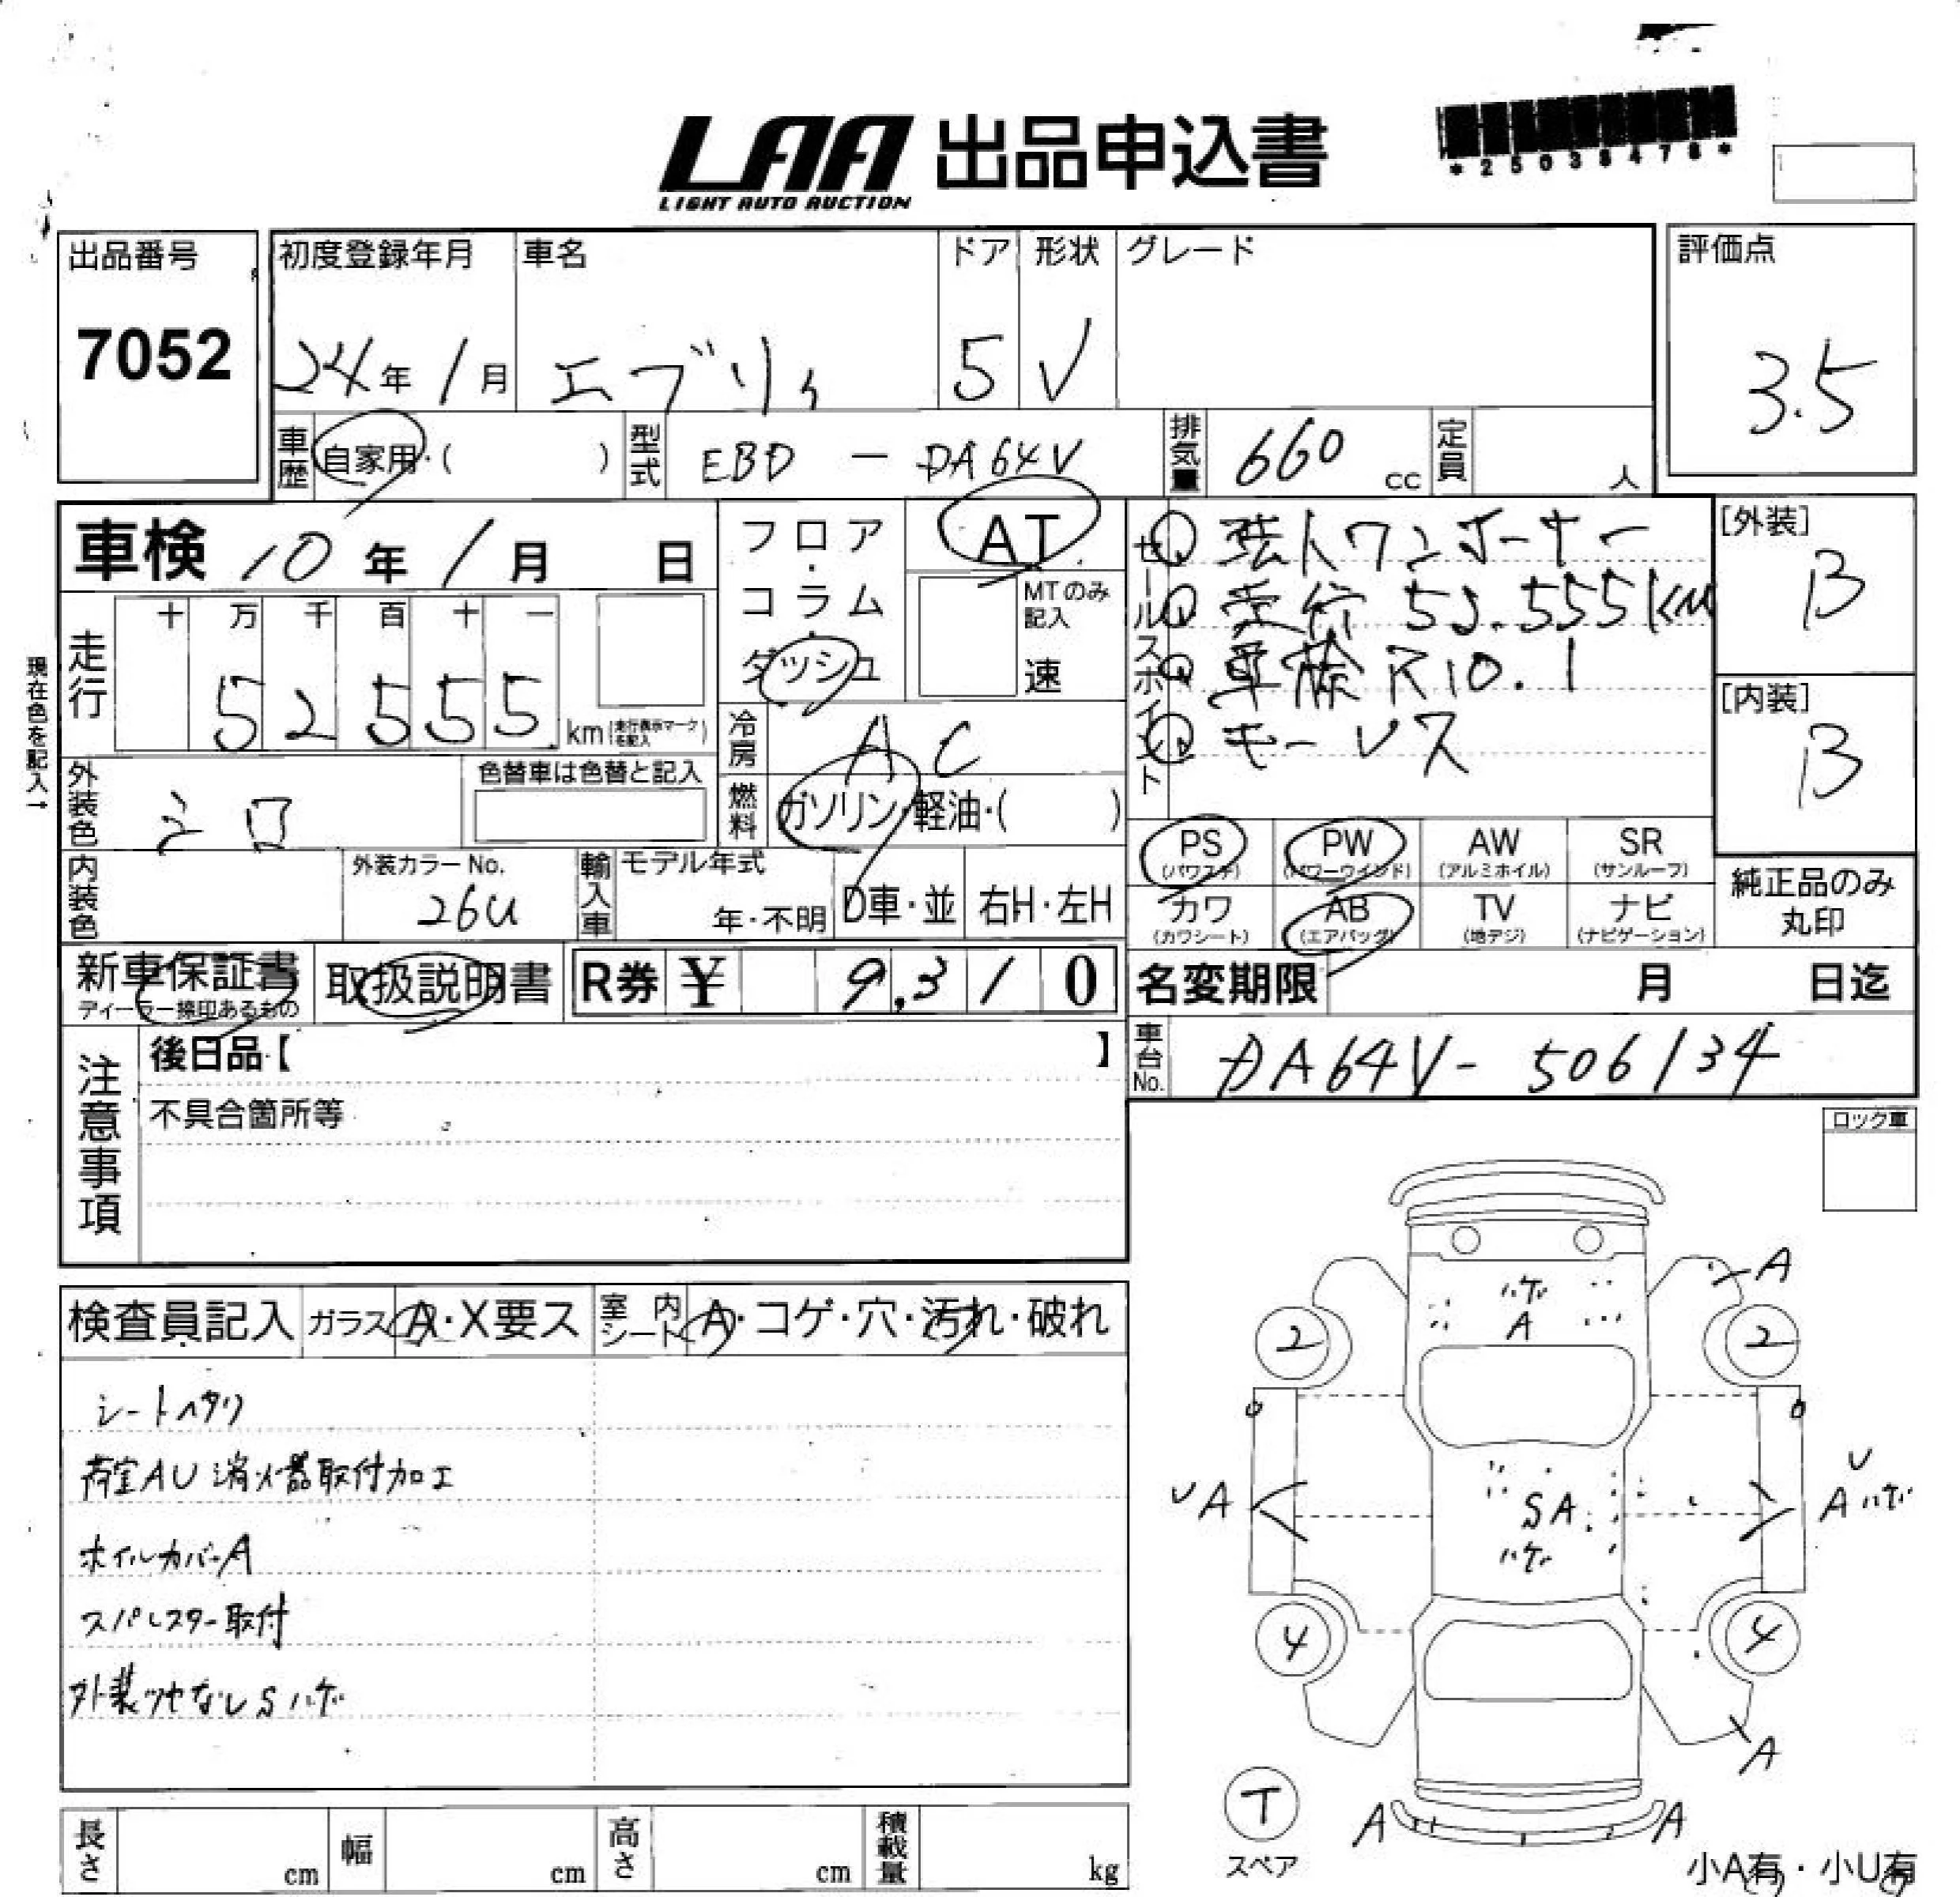 LAA 出品申込書
LIGHT AUTO AUCTION
*25038478*
出品番号
7052
初度登録年月 車名 ドア 形状 グレード
24年 1月 エブリィ 5 V
評価点
3.5
車歴 自家用・( ) 型式 EBD - DA64V 排気量 660 cc 定員 人
車検 10年 1月 日
フロア・コラム・ダッシュ
AT
MTのみ記入
速
セールスポイント
① 法人ワンオーナー
② 走行 52.555km
③ 車検 R10.1
④ キーレス
[外装]
B
[内装]
B
現在色を記入→
走行
十 万 千 百 十 一
52555 km (走行表示マークを記入)
冷房 AC
燃料 ガソリン・軽油・( )
外装色 シロ 色替車は色替と記入
内装色 外装カラーNo. 26U
輸入車 モデル年式 年・不明 D車・並 右H・左H
PS (パワステ) PW (パワーウインド) AW (アルミホイル) SR (サンルーフ)
カワ (カワシート) AB (エアバッグ) TV (地デジ) ナビ (ナビゲーション)
純正品のみ
丸印
新車保証書 取扱説明書 R券 ¥ 9,310
ディーラー捺印あるもの
名変期限 月 日迄
車台No. DA64V-506134
注意事項
後日品【 】
不具合箇所等
ロック車
検査員記入 ガラス A・X要ス 室内シート A・コゲ・穴・汚れ・破れ
シートヘタリ
荷室AU 消火器取付加工
ホイルカバーA
外装ツヤなしSハゲ
ハゲ
A
A
2
2
U A
SA
ハゲ
U
A ハゲ
4
4
A
T
スペア
A
A
小A有・小U有
長さ cm 幅 cm 高さ cm 積載量 kg